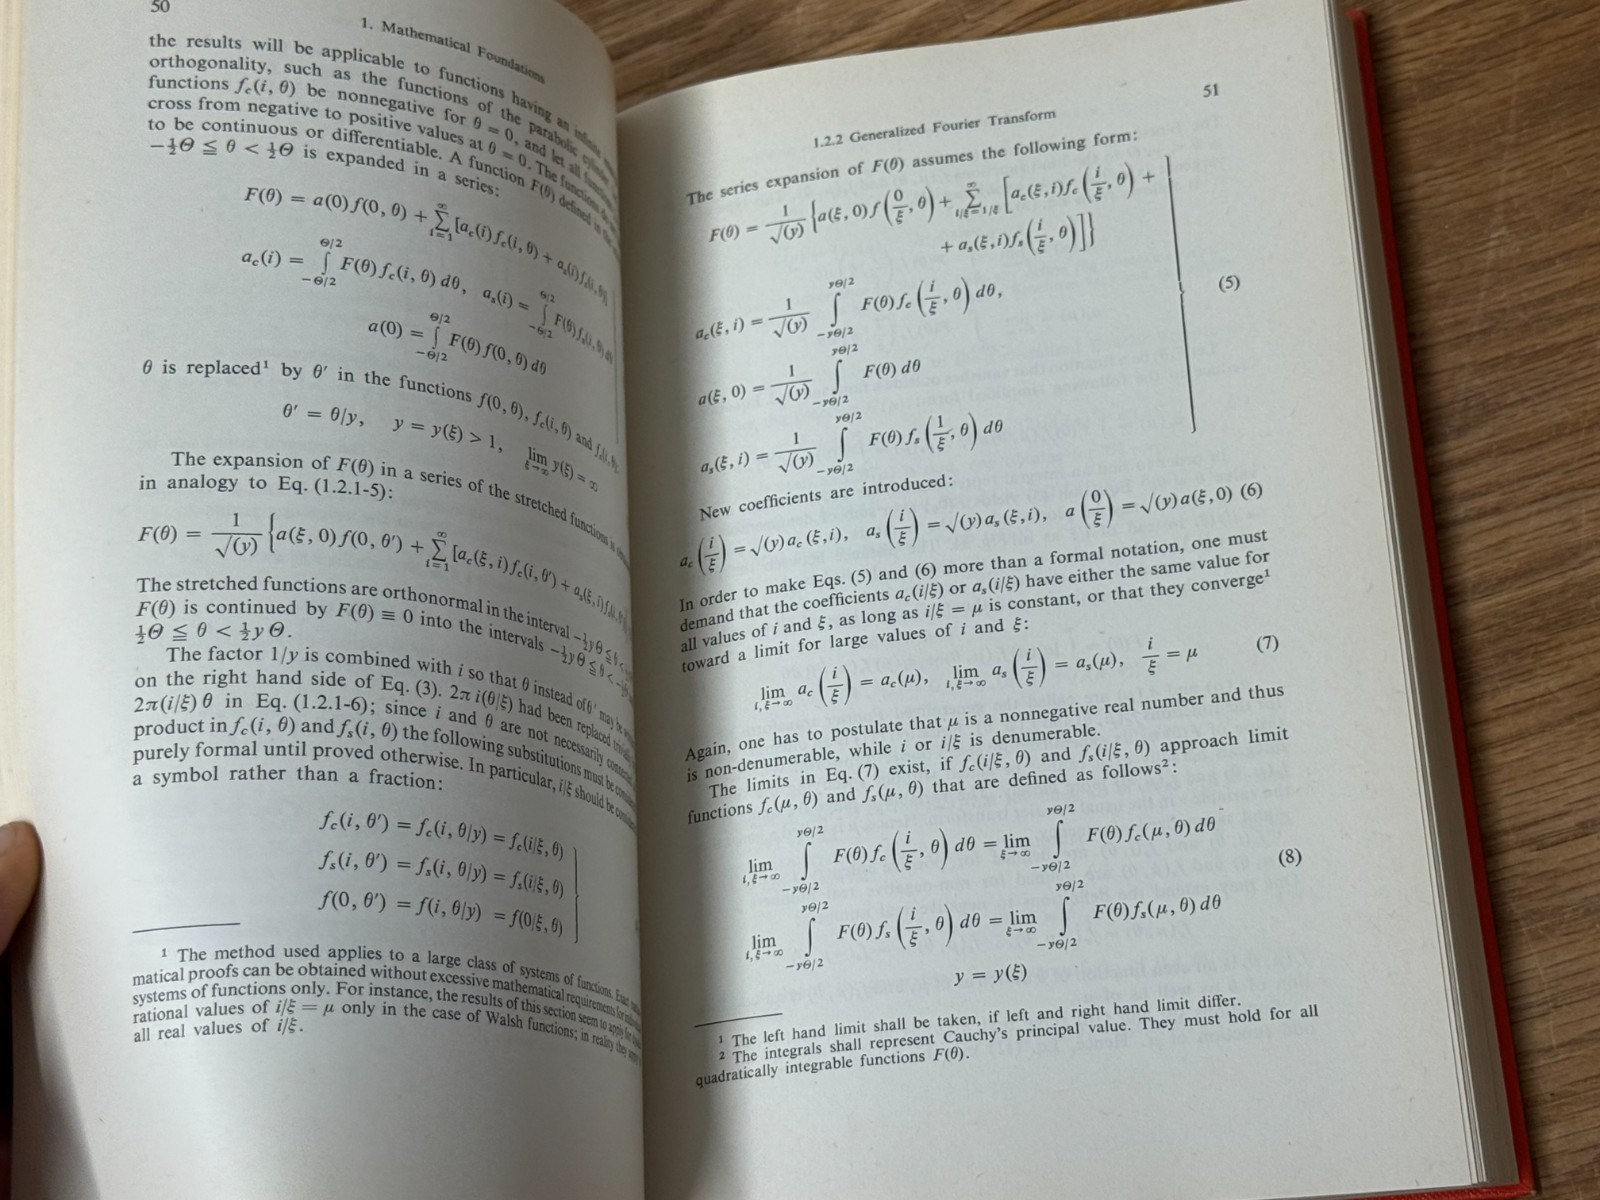 50
1. Mathematical Foundations
the results will be applicable to functions having an infinite
orthogonality, such as the functions of the parabolic
functions f_c(i, θ) be nonnegative for θ = 0, and let all
cross from negative to positive values at θ = 0. The functions
to be continuous or differentiable. A function F(θ) defined in the
−½Θ ≦ θ < ½Θ is expanded in a series:
F(θ) = a(0) f(0, θ) + ∑_{i=1}^{∞} [a_c(i) f_c(i, θ) + a_s(i) f_s(i, θ)]
a_c(i) = ∫_{−Θ/2}^{Θ/2} F(θ) f_c(i, θ) dθ, a_s(i) = ∫_{−Θ/2}^{Θ/2} F(θ) f_s(i, θ) dθ
a(0) = ∫_{−Θ/2}^{Θ/2} F(θ) f(0, θ) dθ
θ is replaced¹ by θ′ in the functions f(0, θ), f_c(i, θ) and f_s(i, θ):
θ′ = θ/y, y = y(ξ) > 1, lim_{ξ→∞} y(ξ) = ∞
The expansion of F(θ) in a series of the stretched functions is
in analogy to Eq. (1.2.1-5):
F(θ) = 1/√(y) {a(ξ, 0) f(0, θ′) + ∑_{i=1}^{∞} [a_c(ξ, i) f_c(i, θ′) + a_s(ξ, i) f_s(i, θ′)
The stretched functions are orthonormal in the interval −½yΘ ≦ θ <
F(θ) is continued by F(θ) ≡ 0 into the intervals −½yΘ ≦ θ <
½Θ ≦ θ < ½yΘ.
The factor 1/y is combined with i so that θ instead of θ′ may be
on the right hand side of Eq. (3). 2π i(θ/ξ) had been replaced
2π(i/ξ) θ in Eq. (1.2.1-6); since i and θ are not necessarily
product in f_c(i, θ) and f_s(i, θ) the following substitutions must be
purely formal until proved otherwise. In particular, i/ξ should be
a symbol rather than a fraction:
f_c(i, θ′) = f_c(i, θ/y) = f_c(i/ξ, θ)
f_s(i, θ′) = f_s(i, θ/y) = f_s(i/ξ, θ)
f(0, θ′) = f(i, θ/y) = f(0/ξ, θ)
¹ The method used applies to a large class of systems of functions. Exact
matical proofs can be obtained without excessive mathematical requirements for
systems of functions only. For instance, the results of this section seem to apply for
rational values of i/ξ = μ only in the case of Walsh functions; in reality they
all real values of i/ξ.
51
1.2.2 Generalized Fourier Transform
The series expansion of F(θ) assumes the following form:
F(θ) = 1/√(y) {a(ξ, 0) f(0/ξ, θ) + ∑_{i/ξ=1/ξ}^{∞} [a_c(ξ, i) f_c(i/ξ, θ) +
+ a_s(ξ, i) f_s(i/ξ, θ)]}
a_c(ξ, i) = 1/√(y) ∫_{−yΘ/2}^{yΘ/2} F(θ) f_c(i/ξ, θ) dθ,
(5)
a(ξ, 0) = 1/√(y) ∫_{−yΘ/2}^{yΘ/2} F(θ) dθ
a_s(ξ, i) = 1/√(y) ∫_{−yΘ/2}^{yΘ/2} F(θ) f_s(1/ξ, θ) dθ
New coefficients are introduced:
a_c(i/ξ) = √(y) a_c(ξ, i), a_s(i/ξ) = √(y) a_s(ξ, i), a(0/ξ) = √(y) a(ξ, 0) (6)
In order to make Eqs. (5) and (6) more than a formal notation, one must
demand that the coefficients a_c(i/ξ) or a_s(i/ξ) have either the same value for
all values of i and ξ, as long as i/ξ = μ is constant, or that they converge¹
toward a limit for large values of i and ξ:
lim_{i,ξ→∞} a_c(i/ξ) = a_c(μ), lim_{i,ξ→∞} a_s(i/ξ) = a_s(μ), i/ξ = μ (7)
Again, one has to postulate that μ is a nonnegative real number and thus
is non-denumerable, while i or i/ξ is denumerable.
The limits in Eq. (7) exist, if f_c(i/ξ, θ) and f_s(i/ξ, θ) approach limit
functions f_c(μ, θ) and f_s(μ, θ) that are defined as follows²:
lim_{i,ξ→∞} ∫_{−yΘ/2}^{yΘ/2} F(θ) f_c(i/ξ, θ) dθ = lim_{ξ→∞} ∫_{−yΘ/2}^{yΘ/2} F(θ) f_c(μ, θ) dθ
(8)
lim_{i,ξ→∞} ∫_{−yΘ/2}^{yΘ/2} F(θ) f_s(i/ξ, θ) dθ = lim_{ξ→∞} ∫_{−yΘ/2}^{yΘ/2} F(θ) f_s(μ, θ) dθ
y = y(ξ)
¹ The left hand limit shall be taken, if left and right hand limit differ.
² The integrals shall represent Cauchy's principal value. They must hold for all
quadratically integrable functions F(θ).